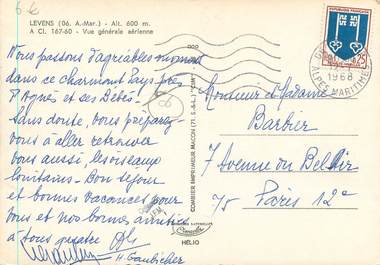 6 €
LEVENS (06. A.-Mar.) - Alt. 600 m.
A CI. 167-60 - Vue générale aérienne
Nous passons d'agréables moments
dans ce charmant Pays près
d'Agnès et ses Bébés.
Sans doute, vous préparez
vous à aller retrouver
vous aussi, les oiseaux
lointains. Bon séjour
et bonnes vacances pour
vous et nos bonnes amitiés
à tous quatre
H. Gaubicher
COMBIER IMPRIMEUR MACON (71. S.-&-L.)
HÉLIO
REPUBLIQUE FRANCAISE
0,25
1968
ALPES MARITIMES
Monsieur et Madame
Barbier
7 Avenue du Bel Air
75 Paris 12e